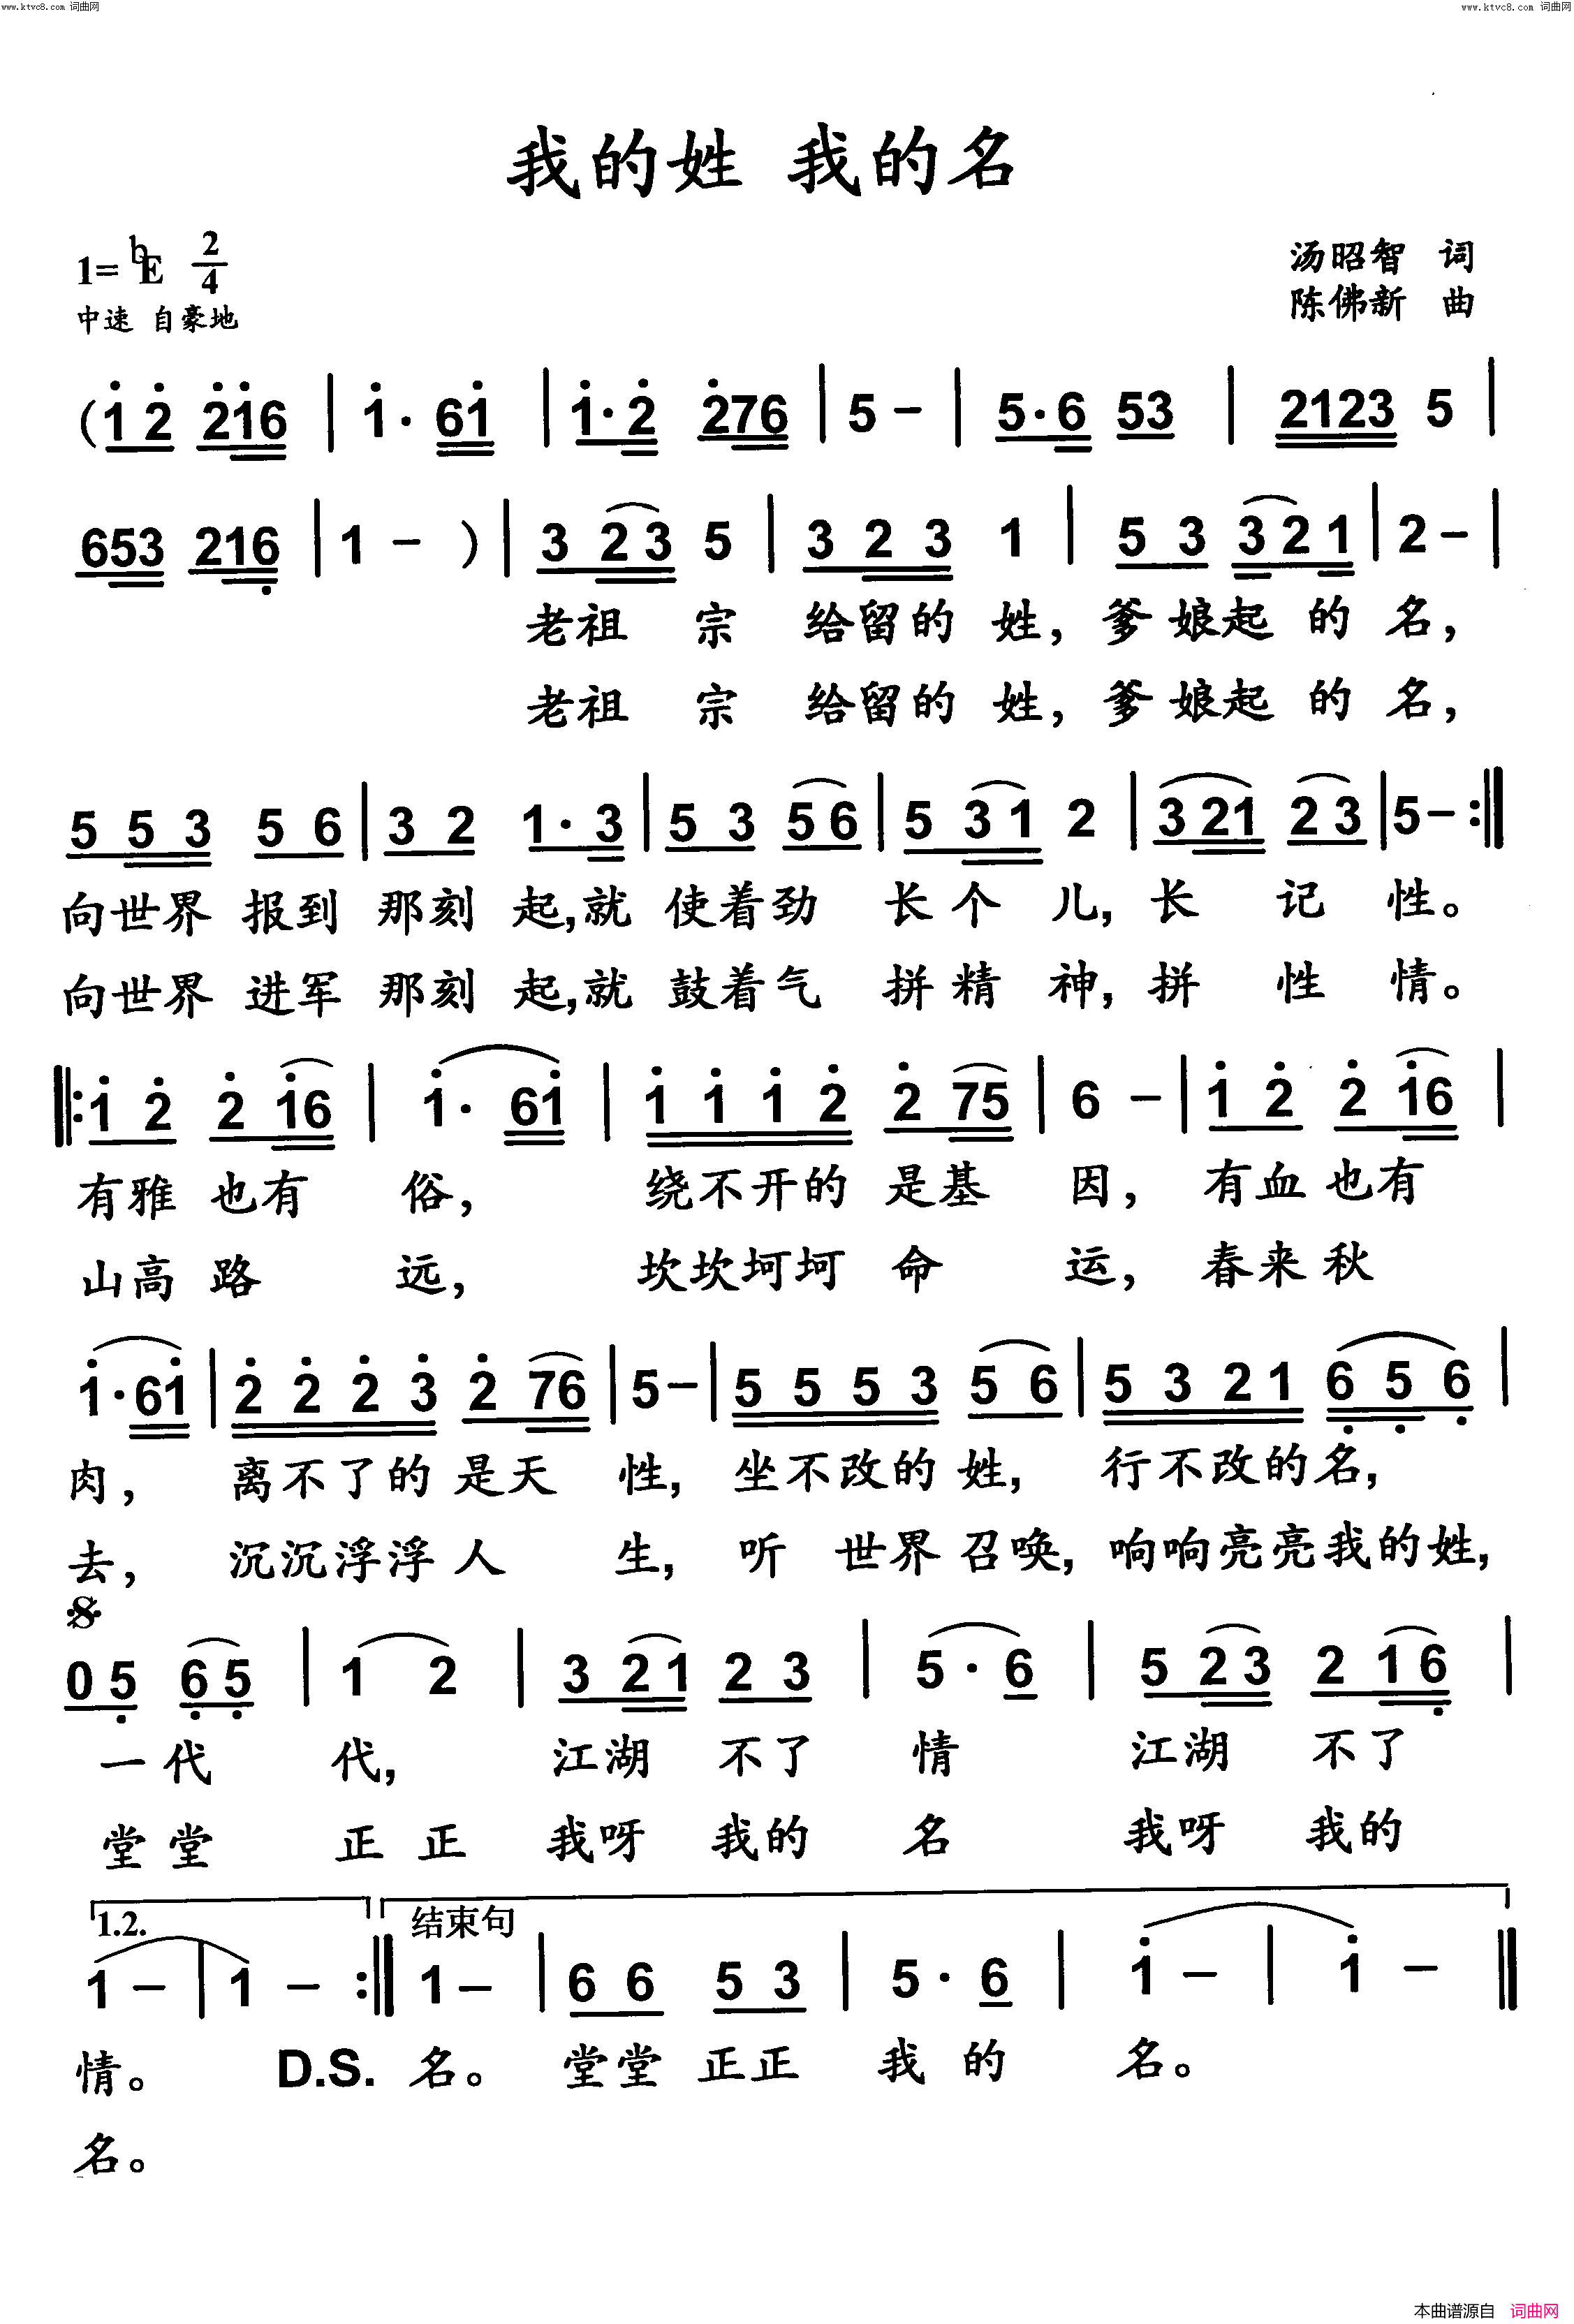 www.ktvc8.com 词曲网 www.ktvc8.com 词曲网
我的姓 我的名
1=♭E 2/4 汤昭智 词
中速 自豪地 陈佛新 曲
(1̇ 2̇ 2̇1̇6 | 1̇· 61̇ | 1̇·2̇ 2̇76 | 5 – | 5·6 53 | 2123 5 |
653 216̣ | 1 – ) | 3 23 5 | 3 23 1 | 5 3 321 | 2 – |
老祖 宗 给留的 姓, 爹娘起 的 名,
老祖 宗 给留的 姓, 爹娘起 的 名,
5 5 3 5 6 | 3 2 1·3 | 5 3 5 6 | 5 3 1 2 | 3 21 2 3 | 5 – :‖
向世界 报到 那刻 起,就 使着劲 长个 儿, 长 记 性。
向世界 进军 那刻 起,就 鼓着气 拼精 神, 拼 性 情。
‖: 1̇ 2̇ 2̇ 1̇6 | 1̇· 61̇ | 1̇ 1̇ 1̇ 2̇ 2̇ 75 | 6 – | 1̇ 2̇ 2̇ 1̇6 |
有雅 也有 俗, 绕不开的 是基 因, 有血也有
山高 路 远, 坎坎坷坷 命 运, 春来秋
1̇·61̇ | 2̇ 2̇ 2̇ 3̇ 2̇ 76 | 5 – | 5 5 5 3 5 6 | 5 3 2 1 6̣ 5̣ 6̣ |
肉, 离不了的 是天 性, 坐不改的 姓, 行不改的名,
去, 沉沉浮浮 人 生, 听 世界 召唤, 响响亮亮我的姓,
𝄋
0 5̣ 6̣ 5̣ | 1 2 | 3 21 2 3 | 5 · 6 | 5 23 2 16̣ |
一代 代, 江湖 不了 情 江湖 不了
堂堂 正正 我呀 我的 名 我呀 我的
1.2. 结束句
1 – | 1 – :‖ 1 – | 6 6 5 3 | 5 · 6 | 1̇ – | 1̇ – ‖
情。 D.S. 名。 堂堂 正正 我 的 名。
名。
本曲谱源自 词曲网